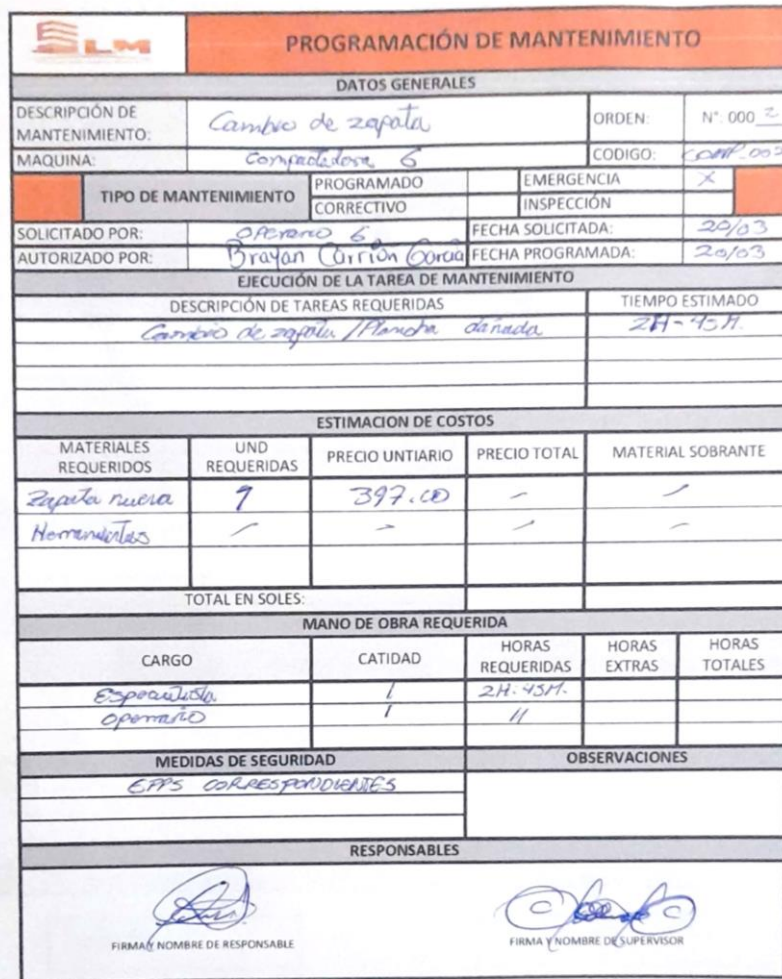 SLM
PROGRAMACIÓN DE MANTENIMIENTO
DATOS GENERALES
DESCRIPCIÓN DE MANTENIMIENTO: Cambio de zapata ORDEN: N°: 000 2
MAQUINA: Compactadora 6 CODIGO: COMP-002
TIPO DE MANTENIMIENTO PROGRAMADO EMERGENCIA X
CORRECTIVO INSPECCIÓN
SOLICITADO POR: Operario 6 FECHA SOLICITADA: 20/03
AUTORIZADO POR: Brayan Carrión García FECHA PROGRAMADA: 20/03
EJECUCIÓN DE LA TAREA DE MANTENIMIENTO
DESCRIPCIÓN DE TAREAS REQUERIDAS TIEMPO ESTIMADO
Cambio de zapata / Plancha dañada 2H-45M.
ESTIMACION DE COSTOS
MATERIALES REQUERIDOS UND REQUERIDAS PRECIO UNTIARIO PRECIO TOTAL MATERIAL SOBRANTE
Zapata nueva 1 397.00 - -
Herramientas - - - -
TOTAL EN SOLES:
MANO DE OBRA REQUERIDA
CARGO CATIDAD HORAS REQUERIDAS HORAS EXTRAS HORAS TOTALES
Especialista 1 2H-45M.
Operario 1 11
MEDIDAS DE SEGURIDAD OBSERVACIONES
EPPS CORRESPONDIENTES
RESPONSABLES
FIRMA Y NOMBRE DE RESPONSABLE FIRMA Y NOMBRE DE SUPERVISOR